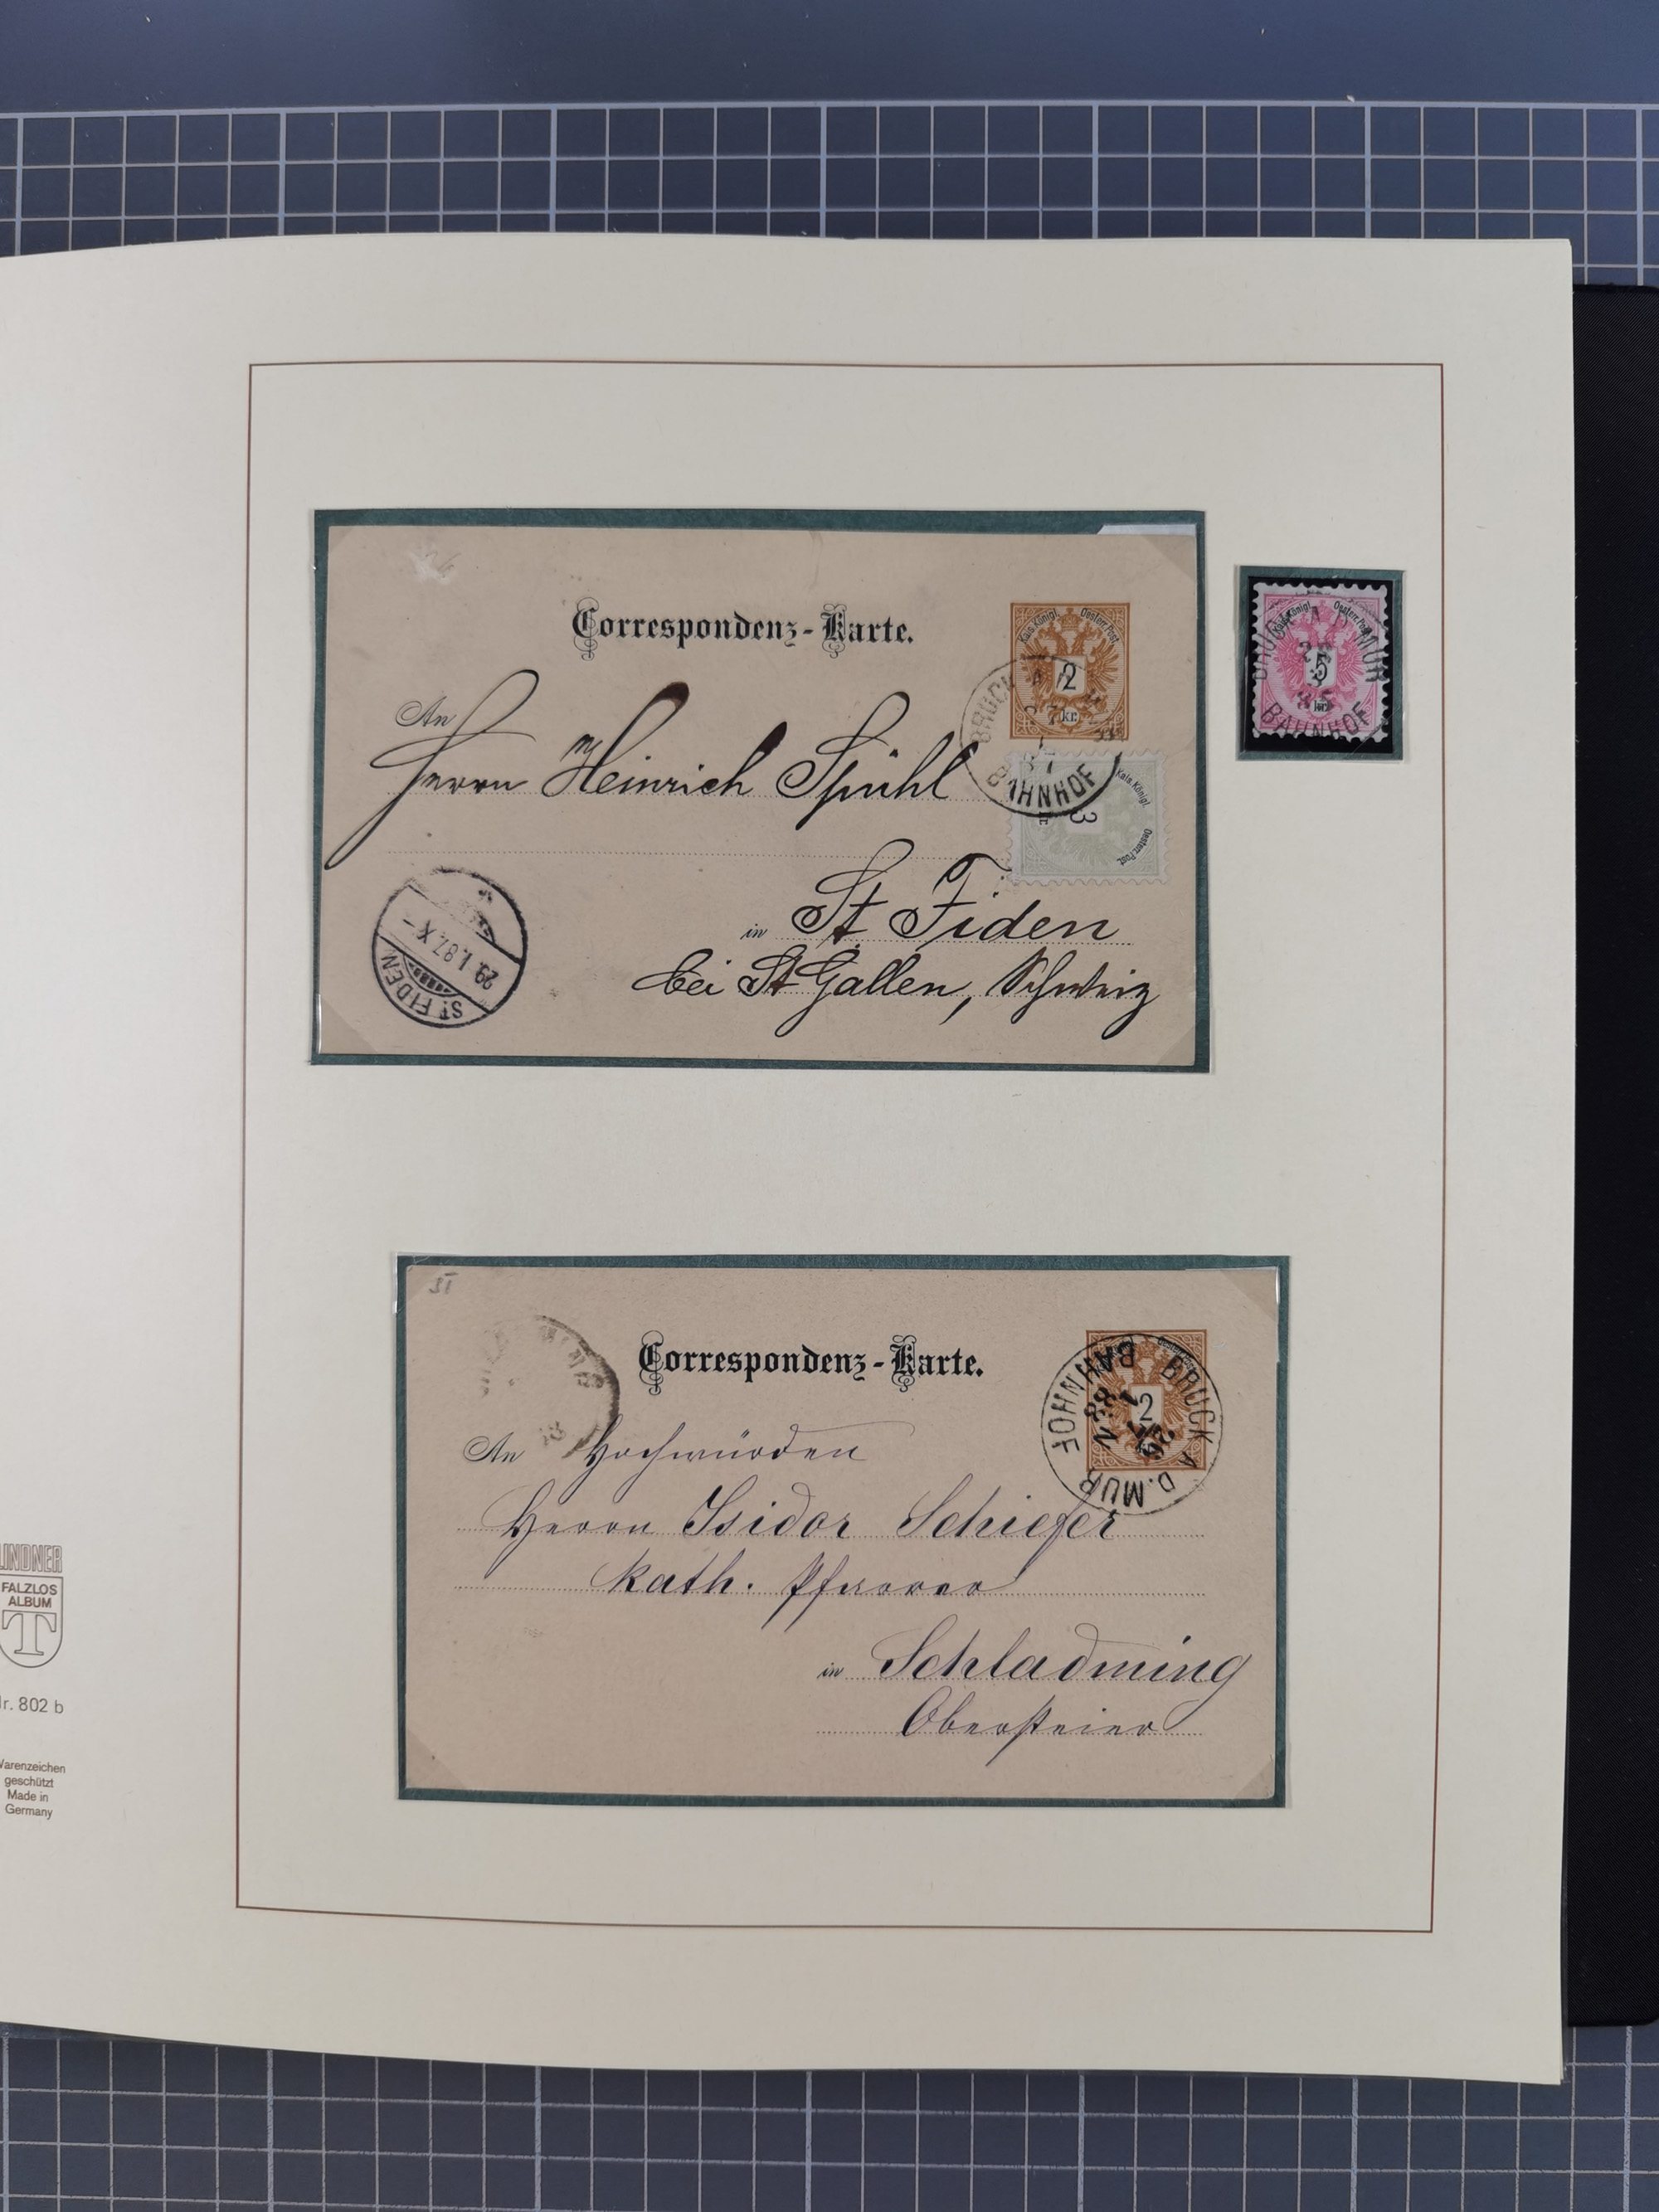 Correspondenz-Karte.
Kais. Königl. Oesterr. Post
2
kr.
BRUCK A D M
BAHNHOF
An
Herrn Heinrich Spühl
Kais. Königl. Oesterr. Post
3
in St. Fiden
bei St Gallen, Schweiz
ST. FIDEN
29. I. 87. X -
Kais. Königl. Oesterr. Post
5
kr.
BRUCK A D MUR
BAHNHOF
Correspondenz-Karte.
2
BRUCK A D. MUR
BAHNHOF
26
1
88
An Hochwürden
Herrn Isidor Schiefer
kath. Pfarrer
in Schladming
Obersteier
LINDNER
FALZLOS
ALBUM
T
Nr. 802 b
Warenzeichen
geschützt
Made in
Germany